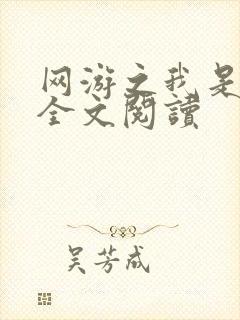 网游之我是
全文閱讀
吴芳成